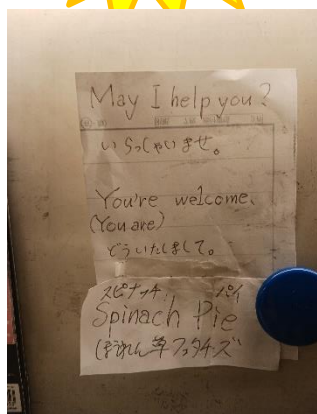 May I help you?
いらっしゃいませ。
You're welcome.
(You are)
どういたしまして。
スピナッチ パイ
Spinach Pie
ほうれん草フェタチーズ